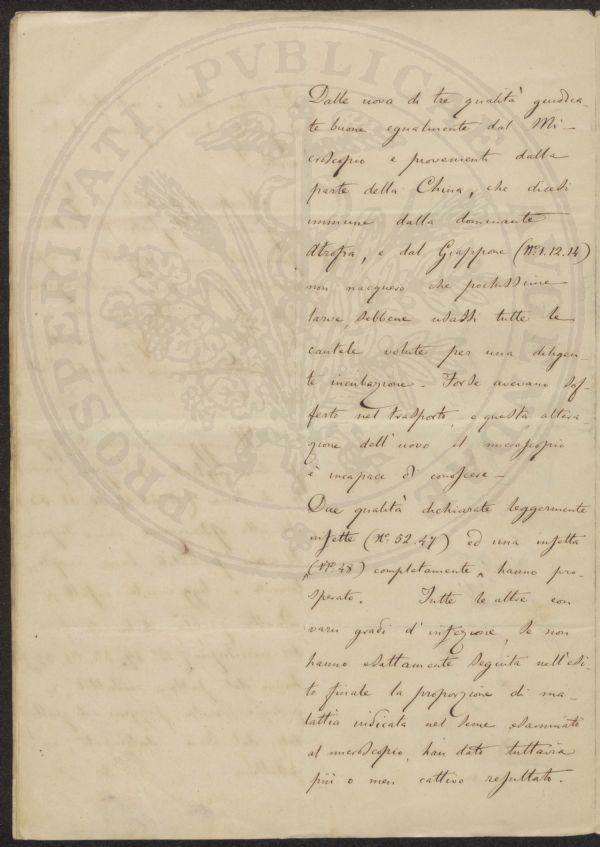 Dalle uova di tre qualità giudica-
te buone egualmente dal Mi-
croscopio e provenienti dalla
parte della China, che dicesi
immune dalla dominante
Atrofia, e dal Giappone (N.º 1.12.14)
non nacquero che pochissime
larve, sebbene usassi tutte le
cautele volute per una diligen-
te incubazione. Forse avevano sof-
ferto nel trasporto, e questa altera-
zione dell'uovo il microscopio
è incapace di conoscere.
Due qualità dichiarate leggermente
infette (N.º 52.47) ed una infetta
(N.º 48) completamente, hanno pro-
sperato. Tutte le altre con
varii gradi d'infezione, se non
hanno esattamente seguita nell'esi-
to finale la proporzione di ma-
lattia indicata nel seme esaminato
al microscopio, han dato tuttavia
più o men cattivo resultato.
PROSPERITATI PVBLICAE